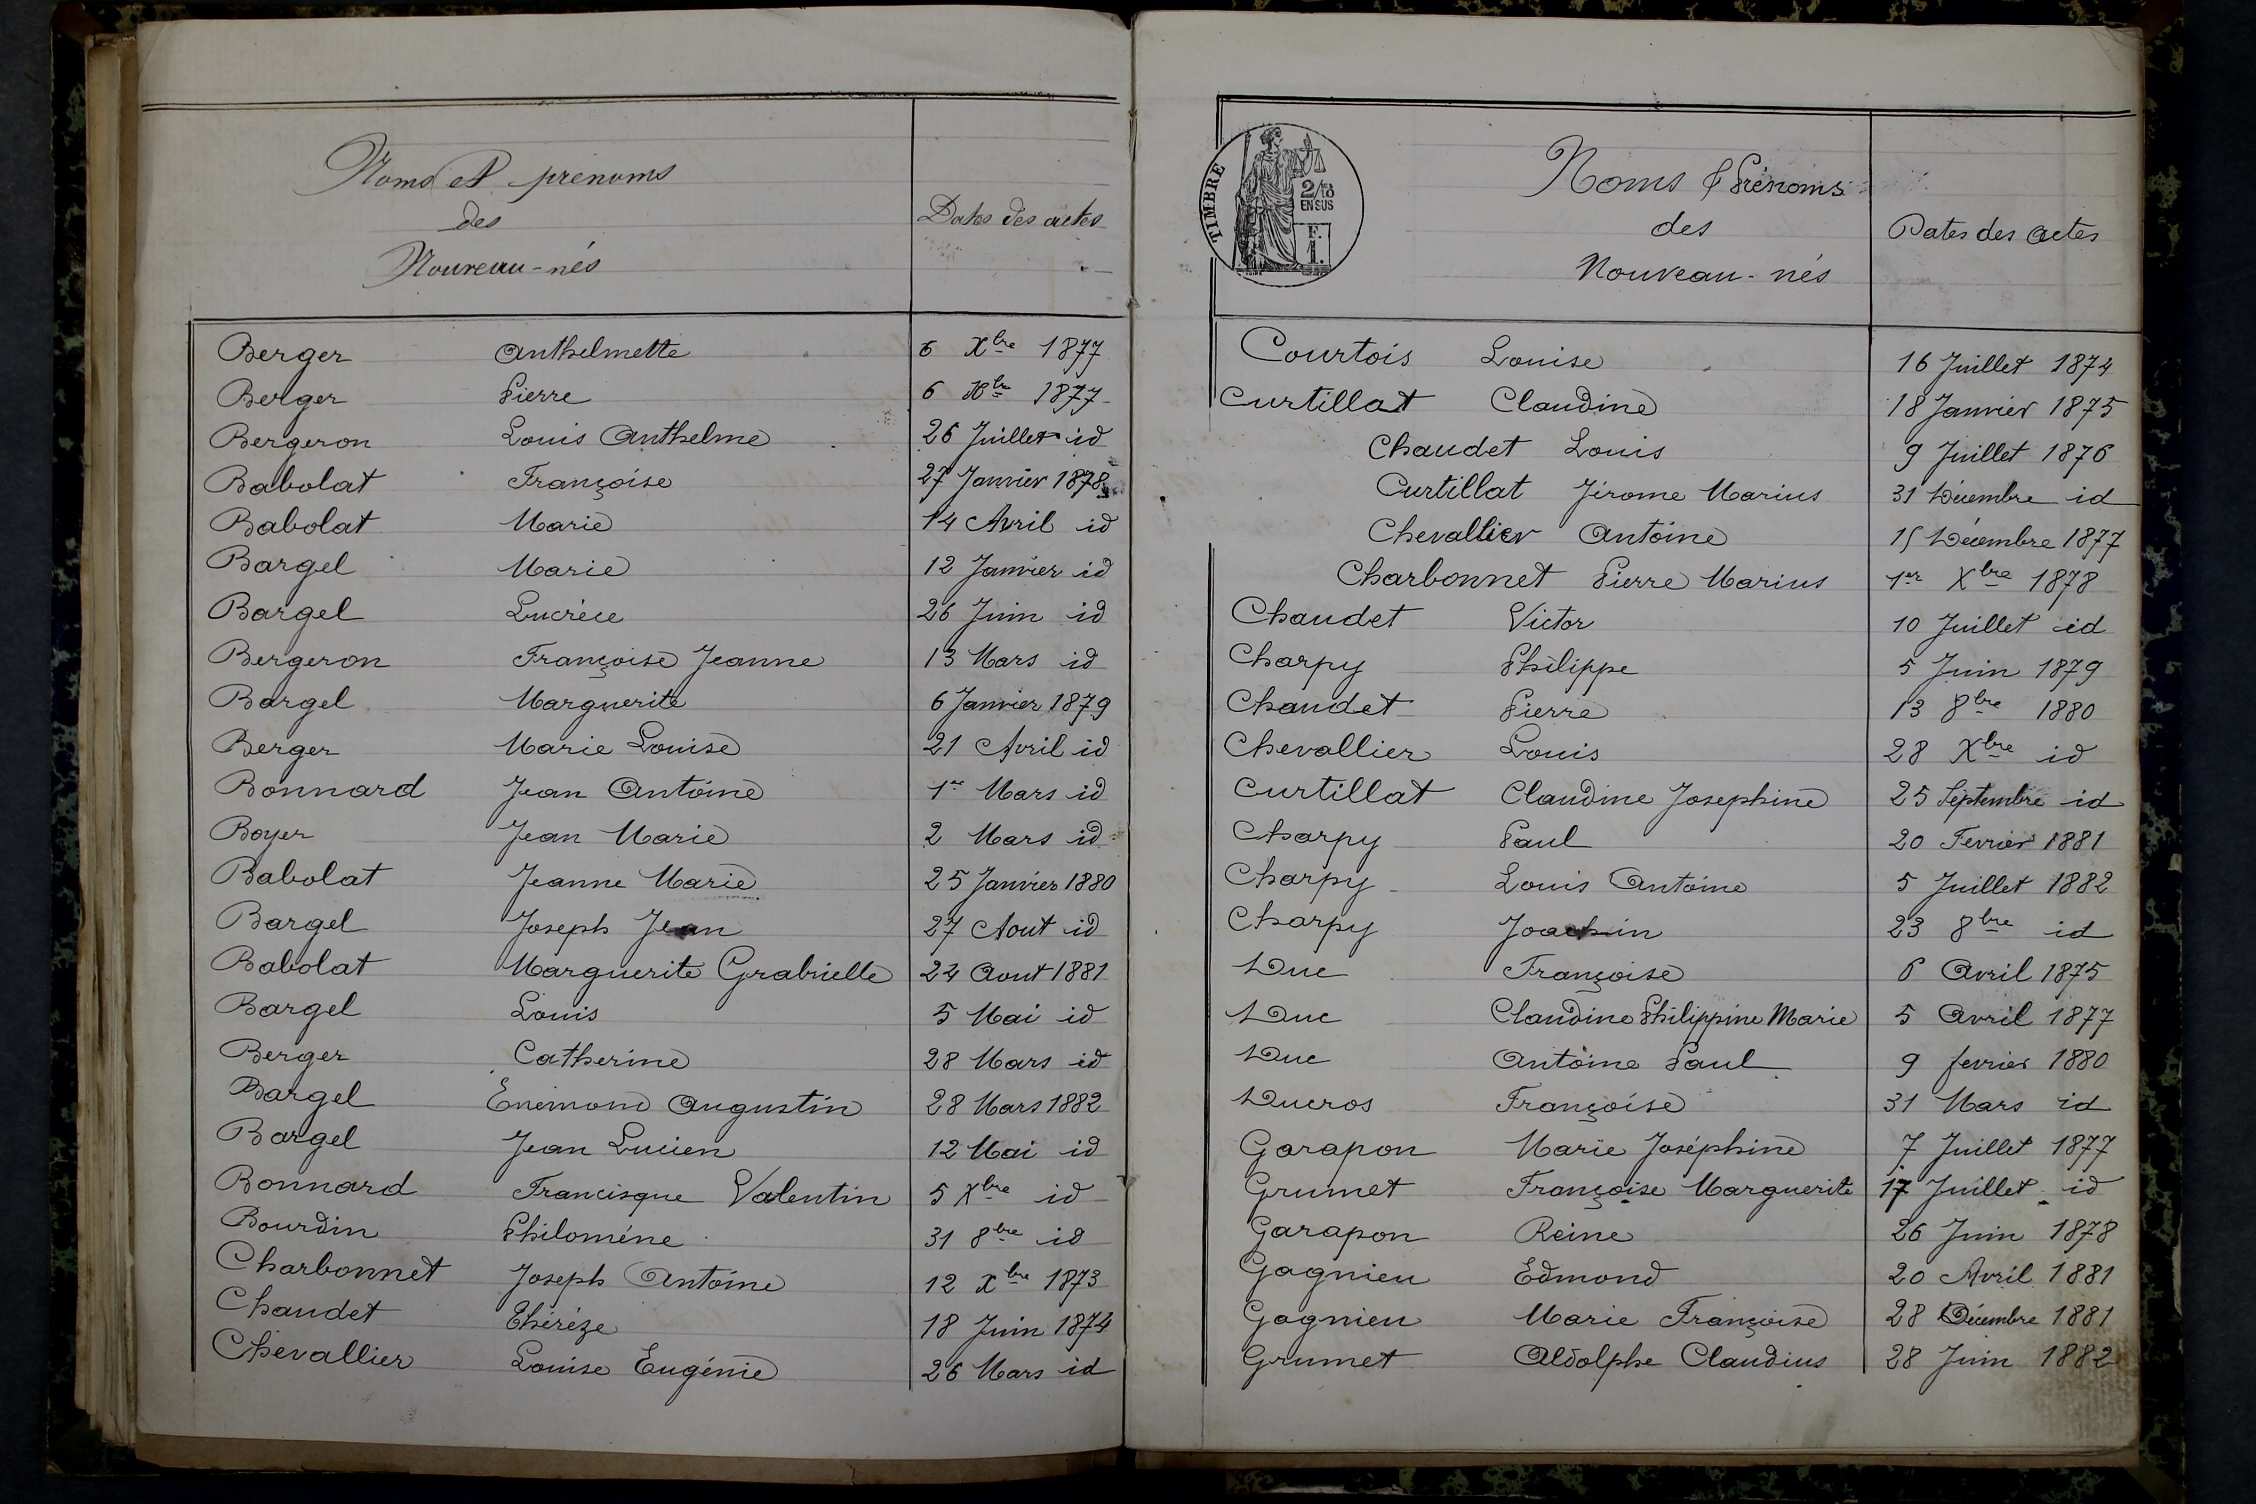 Noms et prénoms
des
Nouveau-nés
Dates des actes
Berger Anthelmette 6 Xbre 1877
Berger Pierre 6 Xbre 1877
Bergeron Louis Anthelme 26 Juillet id
Babolat Françoise 27 Janvier 1878
Babolat Marie 14 Avril id
Bargel Marie 12 Janvier id
Bargel Lucrèce 26 Juin id
Bergeron Françoise Jeanne 13 Mars id
Bargel Marguerite 6 Janvier 1879
Berger Marie Louise 21 Avril id
Bonnard Jean Antoine 1er Mars id
Boyer Jean Marie 2 Mars id
Babolat Jeanne Marie 25 Janvier 1880
Bargel Joseph Jean 27 Aout id
Babolat Marguerite Grabrielle 24 Aout 1881
Bargel Louis 5 Mai id
Berger Catherine 28 Mars id
Bargel Enemond Augustin 28 Mars 1882
Bargel Jean Lucien 12 Mai id
Bonnard Francisque Valentin 5 Xbre id
Bourdin Philomène 31 8bre id
Charbonnet Joseph Antoine 12 Xbre 1873
Chaudet Thérèze 18 Juin 1874
Chevallier Louise Eugénie 26 Mars id
TIMBRE
2/10
EN SUS
F.
1.
Noms & Prénoms
des
Nouveau-nés
Dates des actes
Courtois Louise 16 Juillet 1874
Curtillat Claudine 18 Janvier 1875
Chaudet Louis 9 Juillet 1876
Curtillat Jérome Marius 31 Décembre id
Chevallier Antoine 15 Décembre 1877
Charbonnet Pierre Marius 1er Xbre 1878
Chaudet Victor 10 Juillet id
Charpy Philippe 5 Juin 1879
Chaudet Pierre 13 8bre 1880
Chevallier Louis 28 Xbre id
Curtillat Claudine Josephine 25 Septembre id
Charpy Paul 20 Fevrier 1881
Charpy Louis Antoine 5 Juillet 1882
Charpy Joachin 23 8bre id
Duc Françoise 6 Avril 1875
Duc Claudine Philippine Marie 5 Avril 1877
Duc Antoine Paul 9 fevrier 1880
Ducros Françoise 31 Mars id
Garapon Marie Joséphine 7 Juillet 1877
Grumet Françoise Marguerite 17 Juillet id
Garapon Reine 26 Juin 1878
Gagnieu Edmond 20 Avril 1881
Gagnieu Marie Françoise 28 Décembre 1881
Grumet Aldolphe Claudius 28 Juin 1882